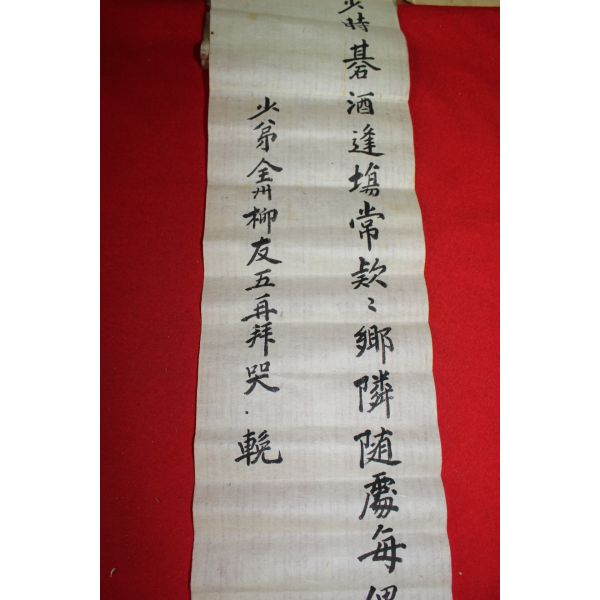 少時碁酒逢塲常欵〻鄉隣随處每
少弟全州柳友五再拜哭·輓